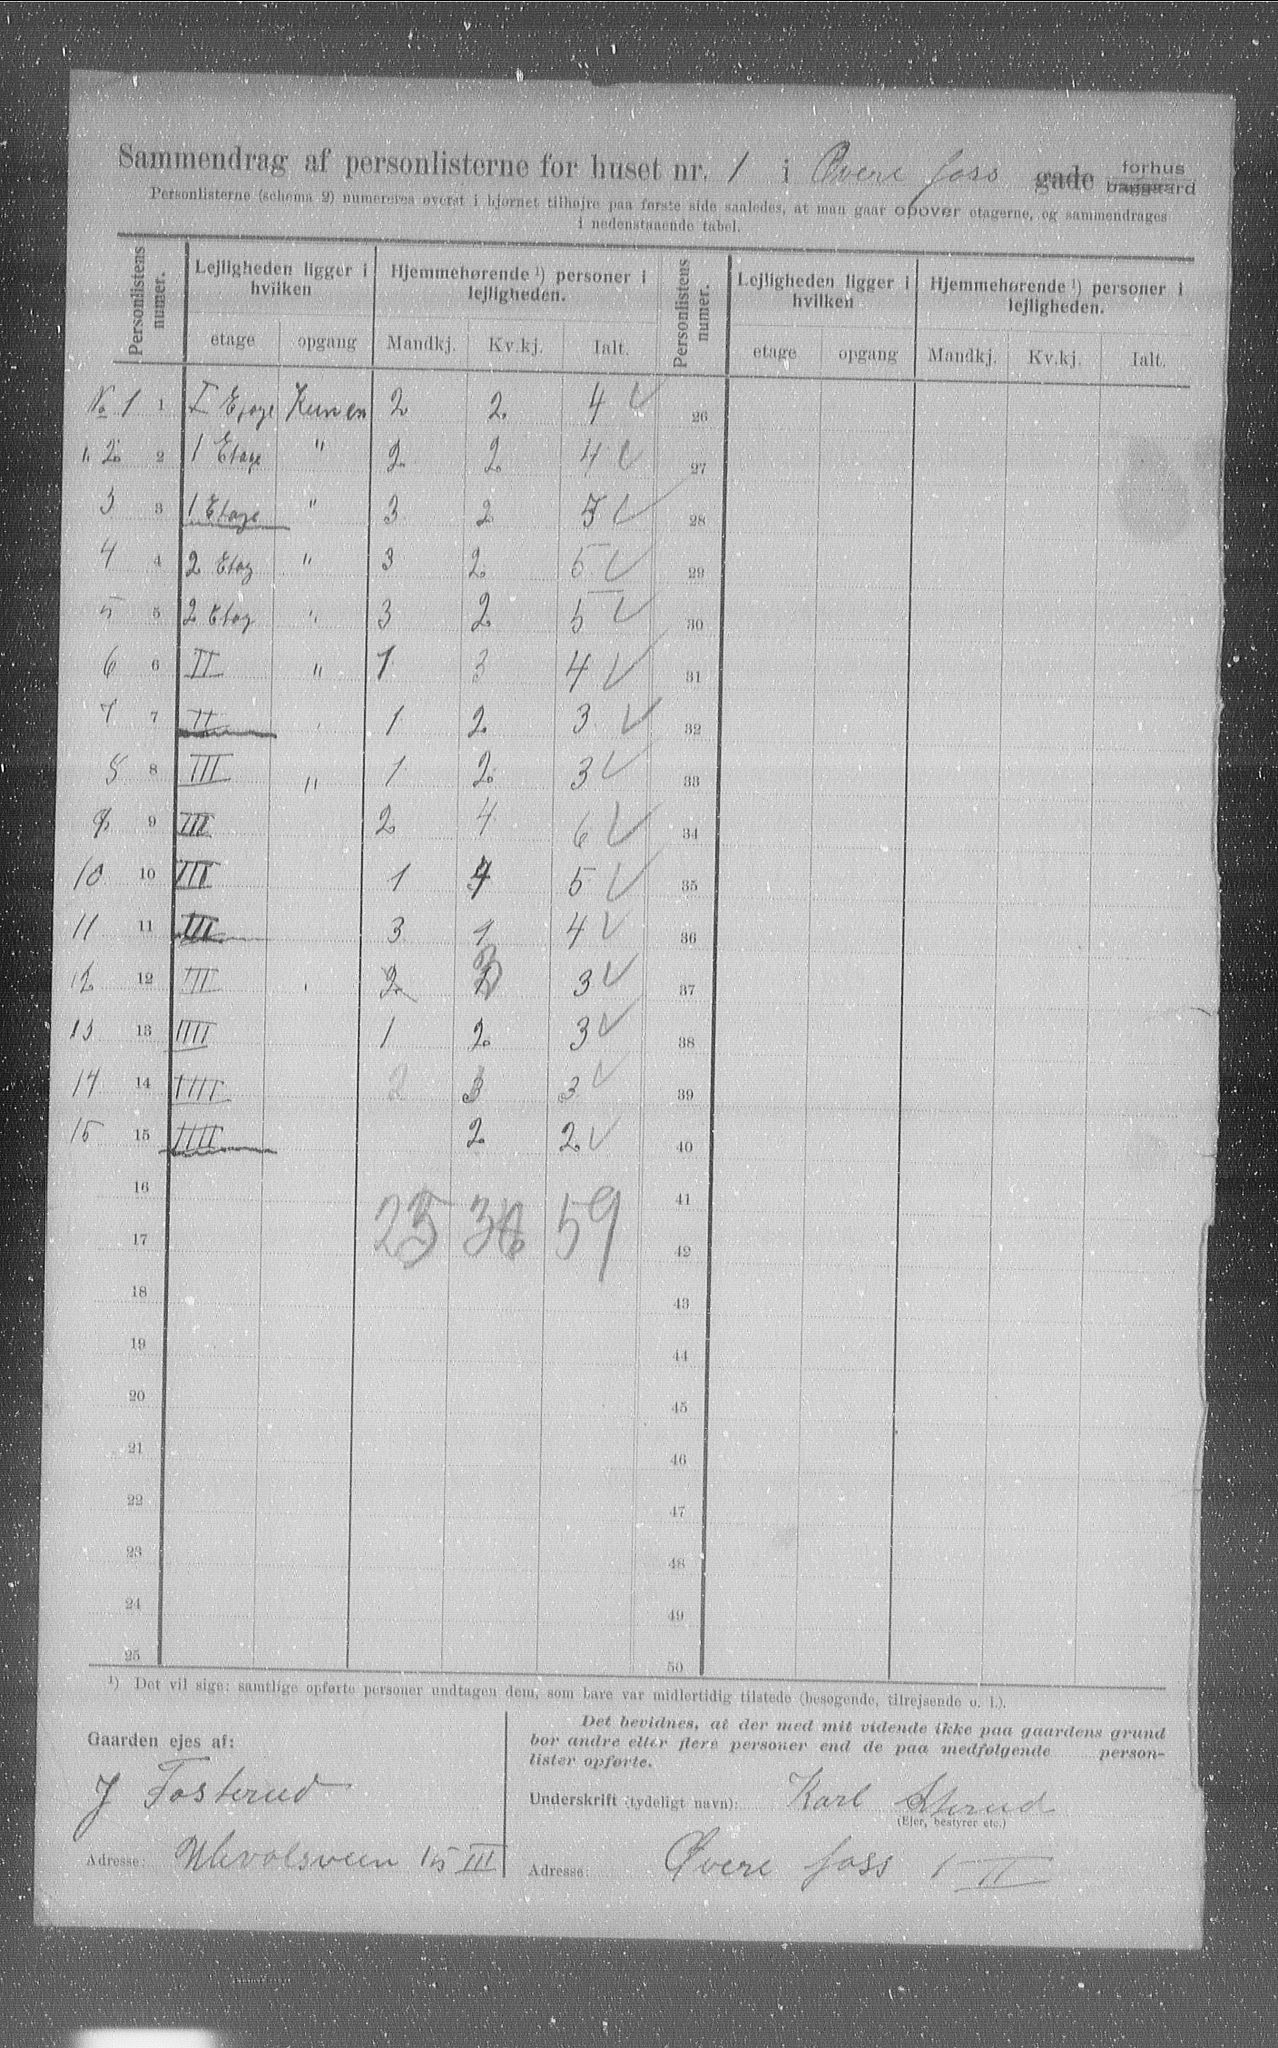 Sammendrag af personlisterne for huset nr. 1 i Øvere foss gade forhus baggaard
Personlisterne (schema 2) numereres øverst i hjørnet tilhøjre paa første side saaledes, at man gaar opover etagerne, og sammendrages
i nedenstaaende tabel.
Personlistens numer. Lejligheden ligger i hvilken Hjemmehørende ¹) personer i lejligheden. Personlistens numer. Lejligheden ligger i hvilken Hjemmehørende ¹) personer i lejligheden.
etage opgang Mandkj. Kv.kj. Ialt. etage opgang Mandkj. Kv.kj. Ialt.
No 1 1 I Etage 2 2 4 ✓ 26
" 2 2 1 Etage " 2 2 4 ✓ 27
3 3 1 Etage " 3 2 5 ✓ 28
4 4 2 Etag " 3 2 5 ✓ 29
5 5 2 Etag " 3 2 5 ✓ 30
6 6 II " 1 3 4 ✓ 31
7 7 II " 1 2 3 ✓ 32
8 8 III " 1 2 3 ✓ 33
9 9 III 2 4 6 ✓ 34
10 10 III 1 4 5 ✓ 35
11 11 III 3 1 4 ✓ 36
12 12 III " 2 3 3 ✓ 37
13 13 IIII 1 2 3 ✓ 38
14 14 IIII 2 3 3 ✓ 39
15 15 IIII 2 2 ✓ 40
16 41
17 59 42
18 43
19 44
20 45
21 46
22 47
23 48
24 49
25 50
¹) Det vil sige: samtlige opførte personer undtagen dem, som bare var midlertidig tilstede (besøgende, tilrejsende o. l.).
Gaarden ejes af:
J Fosterud
Adresse: Ulevolsveien 15 III
Det bevidnes, at der med mit vidende ikke paa gaardens grund
bor andre eller flere personer end de paa medfølgende person-
lister opførte.
Underskrift (tydeligt navn): Karl Sterud
(Ejer, bestyrer etc.)
Adresse: Øvere foss 1 II